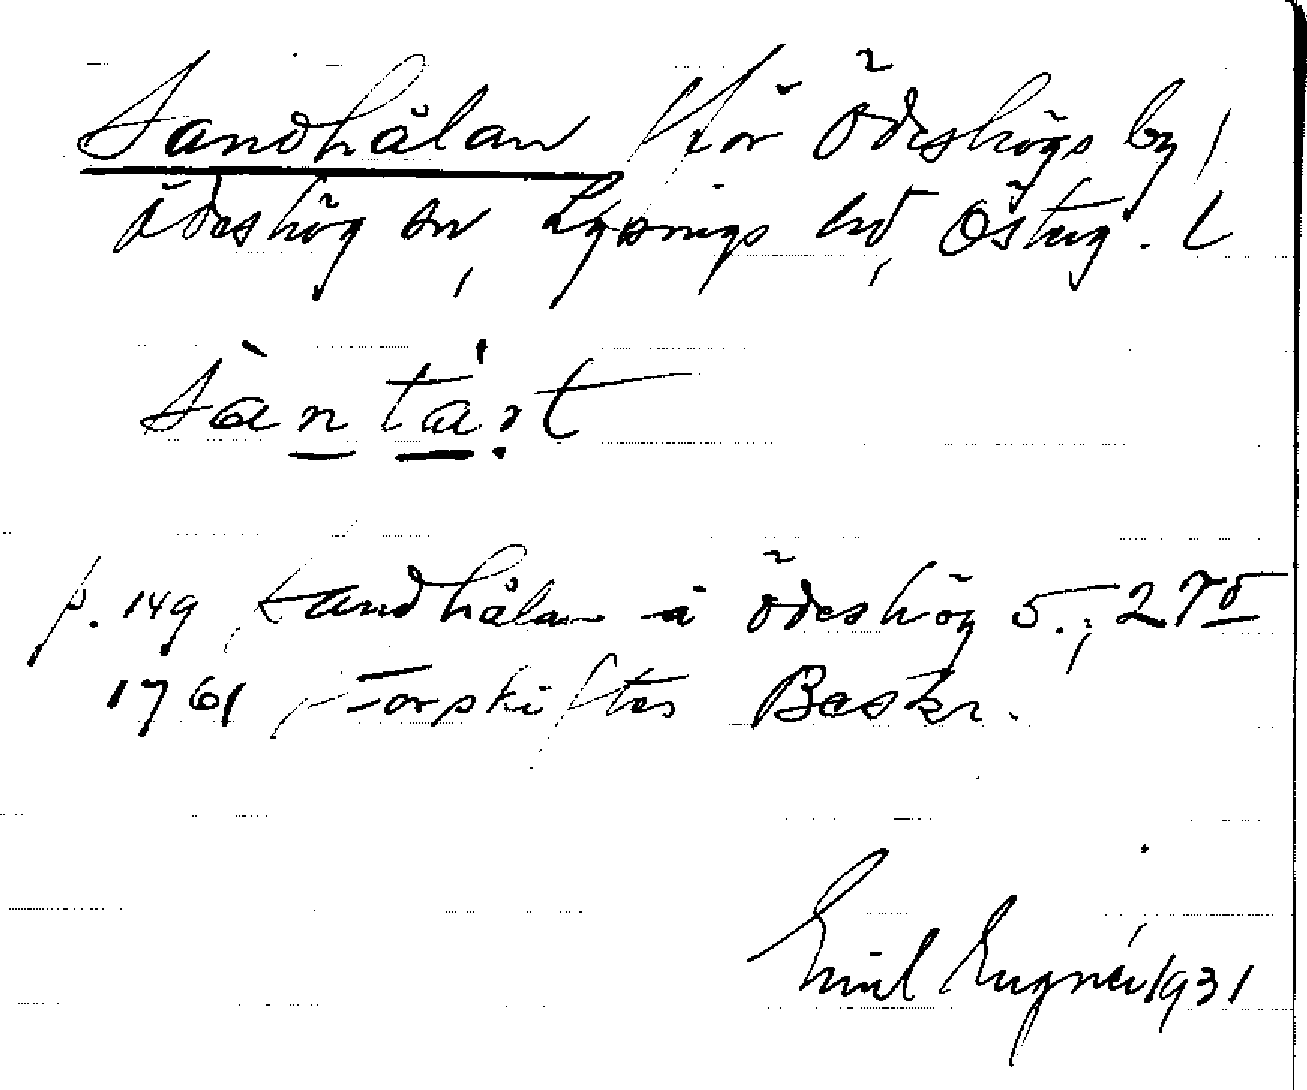 Sandhålan för Ödeshögs by,
Ödeshög sn, Lysings hd, Österg. l
sàn tá.rt
p. 149, Sandhålan å Ödeshög
1761 Storskiftes Beskr.
Emil Eugnér 1931